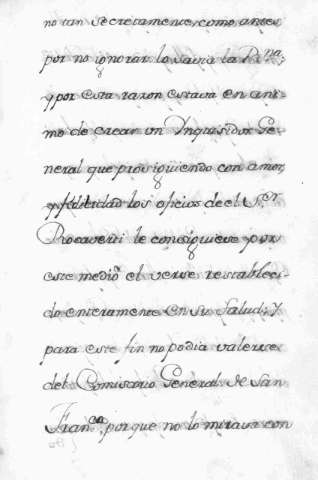 no tan secretamente, como antes
por no ignorar lo savia la Rna;
y por esta razon estava en ani-
mo de crear un Inquisidor Ge-
neral que prosiguiendo con amor,
y fidelidad los oficios de el Sr
Rocaverti le consiguiese por
este medio el verse restableci-
do enteramente en su salud; y
para este fin no podia valerse
del Comisario General de San
Franco, porque no lo mirava con